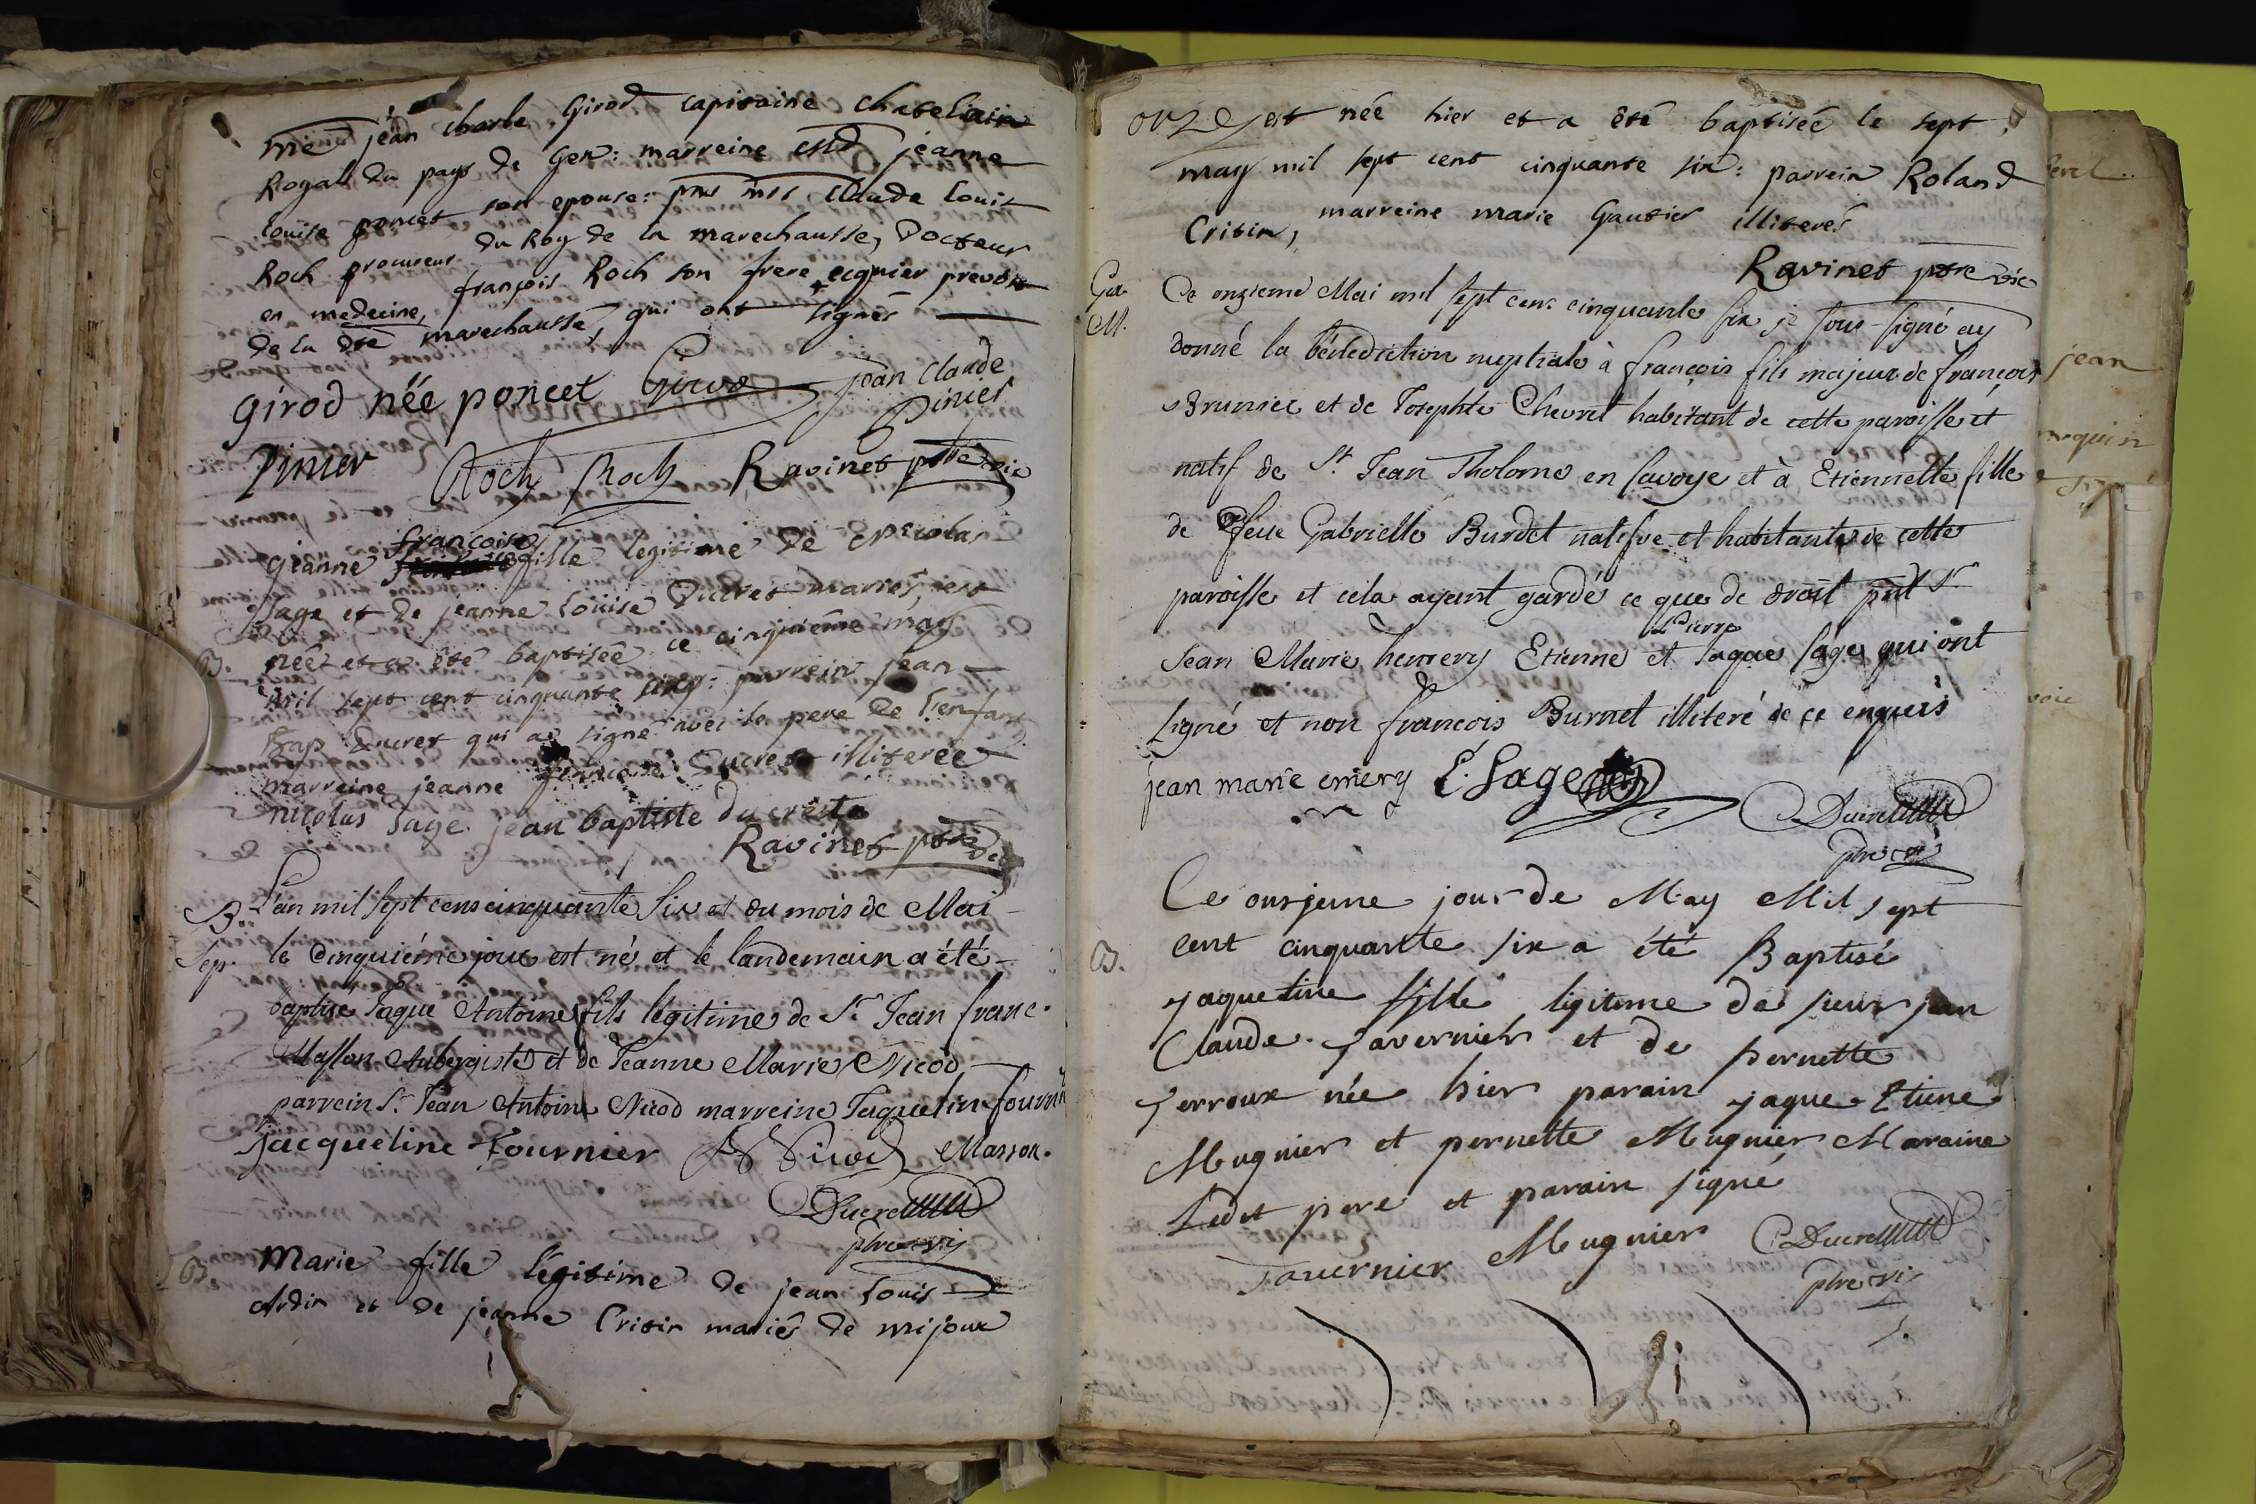 me jean charle Girod capitaine chatelain
Royal du pays de Gex: marreine jeanne
louise poncet son epouse: claude louis
Roch procureur du Roy de la marechausse, Docteur
en medecine, françois Roch son frere ecquier prevost
de la dte marechausse, qui ont signés
girod née poncet Girod jean claude
Pinier
Pinier Roch Roch Ravinet ptre vic
françoise
jeanne fille legitime de nicolas
Sage et de jeanne Louise Ducret mariés, est
B. née et a été baptisée ce cinquième may
mil sept cent cinquante six: parrein jean
Bap. Ducret qui a signé avec le pere de l'enfant
marreine jeanne Ducret illiterée
nicolas Sage jean baptiste ducreste
Ravinet ptre vic
B. L'an mil sept cens cinquante six et du mois de Mai
Sep. le cinquiéme jour est né et le landemain a été
baptisé Jaque Antoine fils légitime de Sr. Jean franc.
Masson Aubergiste et de Jeanne Marie Nicod,
parrein Sr. Jean Antoine Nicod marreine Jaquelin fourni
Jacqueline Fournier Nicod Masson.
Ducret
ptre vi
B. Marie fille légitime de jean Louis
Ardin et de jeanne Critin mariés de mijoux
est née hier et a été baptisée le sept
may mil sept cent cinquante six: parrein Roland
Critin, marreine marie Gautier illiterés
Ravinet ptre vic
Gex Ce onzieme Mai mil sept cens cinquante six je sous-signé ay
M. donné la bénediction nuptiale à françois fils majeur de françois
Brunier et de Josephte Chevret habitant de cette paroisse et
natif de St. Jean Tholome en savoye et à Etiennette fille
de feue Gabrielle Burdet natifve et habitante de cette
paroisse et cela ayant gardé ce que de droit pnt Sr
Pierre
Jean Marie hemery Etienne et Jaque Sage qui ont
signé et non françois Burnet illiteré de ce enqueis
jean marie emery E. Sage
Ducret
ptre vi
Ce onsjeme jour de May Mil sept
B. cent cinquante six a été Baptisé
jaquetine fille ligitime de sieur jean
Claude Tavernier et de pernette
ferroux née hier parain jaque Etiene
Mugnier et pernette Mugnier Maraine
Ledit pere et parain signé
Tavernier Mugnier Ducret
ptre vi
jean
voie